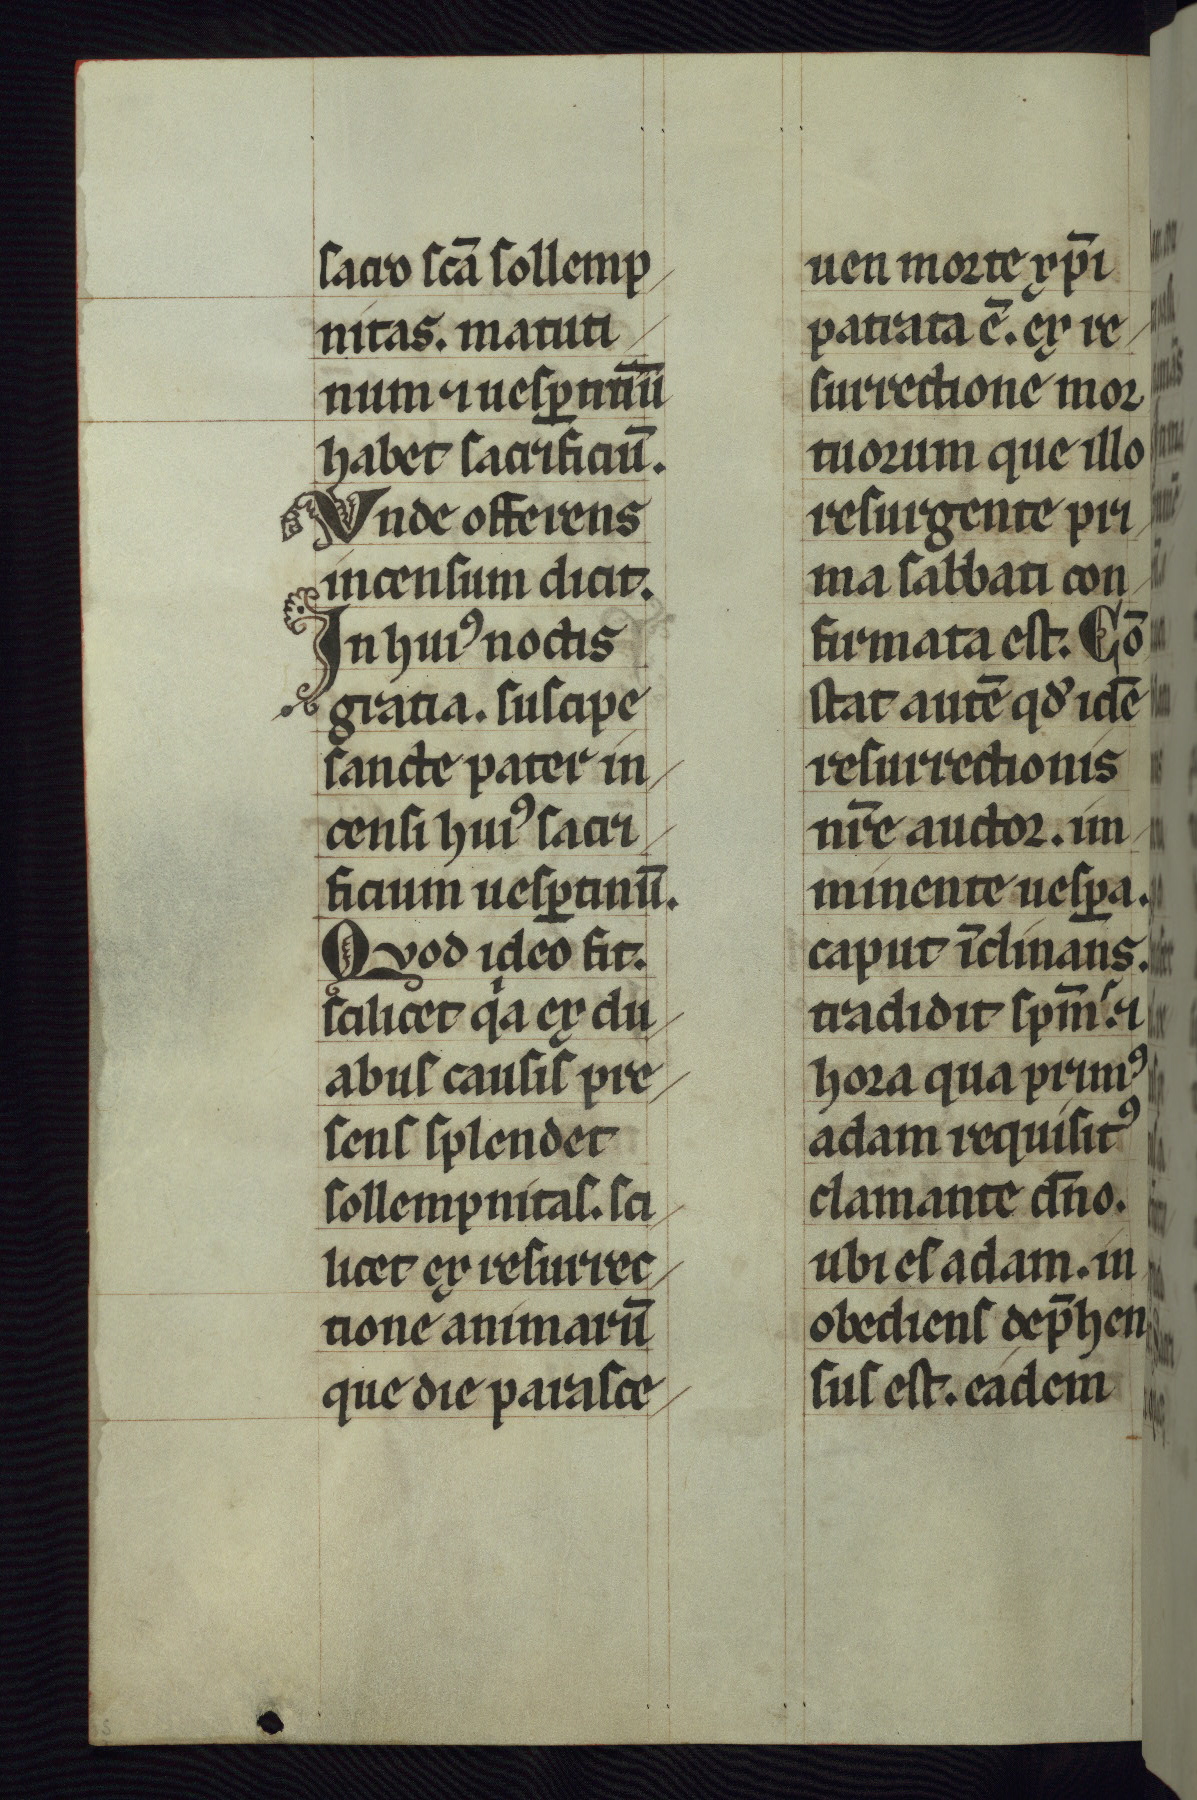 sacro scā sollemp
nitas. matuti
num ⁊ uesꝑtinū
habet sacrificiū.
Vnde offerens
incensum dicit.
In huiꝰ noctis
gratia. suscipe
sancte pater in
censi huiꝰ sacri
ficium uesꝑtinū.
Quod ideo fit.
scilicet qͥa ex du
abus causis pre
sens splendet
sollempnitas. sci
licet ex resurrec
tione animarū
que die parasce
uen morte xp̄i
patrata ē. ex re
surrectione mor
tuorum que illo
resurgente pri
ma sabbati con
firmata est. Cō
stat autē qď idē
resurrectionis
nr̄e auctor. im
minente uesꝑa.
caput īclinans.
tradidit spm̄. ⁊
hora qua primꝰ
adam requisitꝰ
clamante dn̄o.
ubi es adam. in
obediens dep̄hen
sus est. eadem